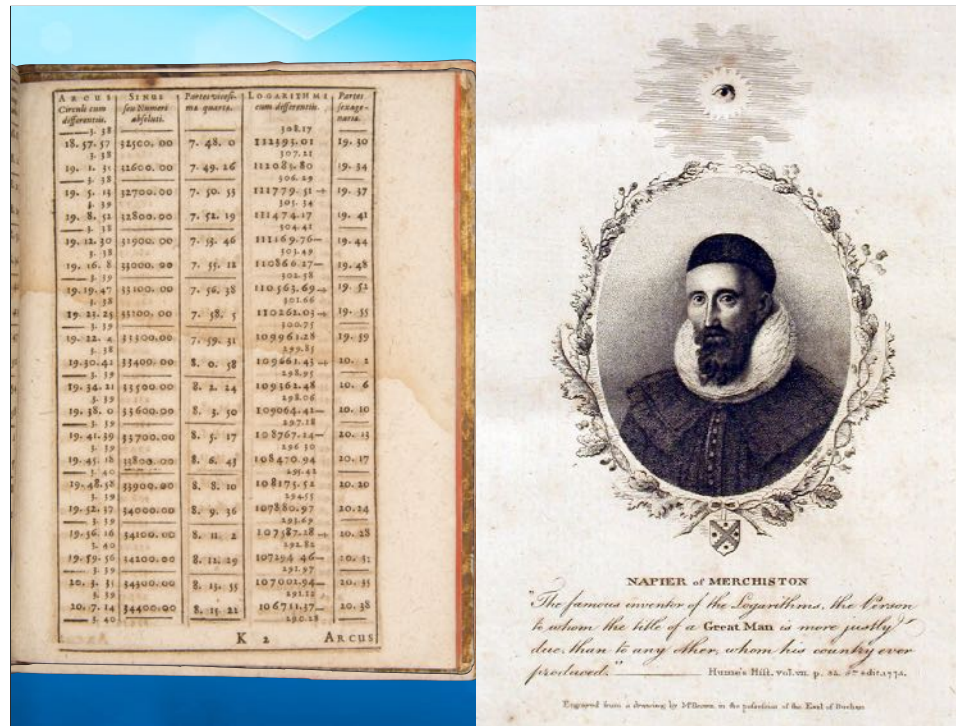 ARCUS SINUS Partes vicesi- LOGARITHMI Partes
Circuli cum seu Numeri ma quarta. cum differentiis. sexage-
differentiis. absoluti. naria.
3. 38 308.17
18.57.57 32500.00 7. 48. 0 112393.01 19. 30
3. 38 307.21
19. 1. 35 32600.00 7. 49. 26 112085.80 19. 34
3. 38 306.29
19. 5. 13 32700.00 7. 50. 53 111779.51 19. 37
3. 39 305.34
19. 8. 52 32800.00 7. 52. 19 111474.17 19. 41
3. 38 304.41
19. 12. 30 32900.00 7. 53. 46 111169.76 19. 44
3. 38 303.49
19. 16. 8 33000.00 7. 55. 12 110866.27 19. 48
3. 39 302.58
19. 19. 47 33100.00 7. 56. 38 110563.69 19. 52
3. 38 301.66
19. 23. 25 33200.00 7. 58. 5 110262.03 19. 55
3. 39 300.75
33300.00 7. 59. 31 109961.28 19. 59
3. 38 299.85
19. 30. 42 33400.00 8. 0. 58 109661.43 20. 2
3. 39 298.95
19. 34. 21 33500.00 8. 2. 24 109362.48 20. 6
3. 39 298.06
19. 38. 0 33600.00 8. 3. 50 109064.42 20. 10
3. 39 297.18
19. 41. 39 33700.00 8. 5. 17 108767.24 20. 13
3. 39 296.30
19. 45. 18 33800.00 8. 6. 43 108470.94 20. 17
3. 40 295.42
19. 48. 58 33900.00 8. 8. 10 108175.52 20. 20
3. 39 294.55
19. 52. 37 34000.00 8. 9. 36 107880.97 20. 24
3. 39 293.69
19. 56. 16 34100.00 8. 11. 2 107587.28 20. 28
3. 40 292.82
19. 59. 56 34200.00 8. 12. 29 107294.46 20. 31
3. 39
20. 3. 35 34300.00 8. 13. 55 20. 35
3. 39
20. 7. 14 34400.00 8. 15. 22 106711.37 20. 38
3. 40 290.28
K 2 ARCUS
NAPIER of MERCHISTON
"The famous inventor of the Logarithms, the Person
to whom the title of a Great Man is more justly
due, than to any other, whom his country ever
produced." Hume's Hist. vol. vii. p. 44.
Engraved from a drawing by Mr Brown in the possession of the Earl of Buchan